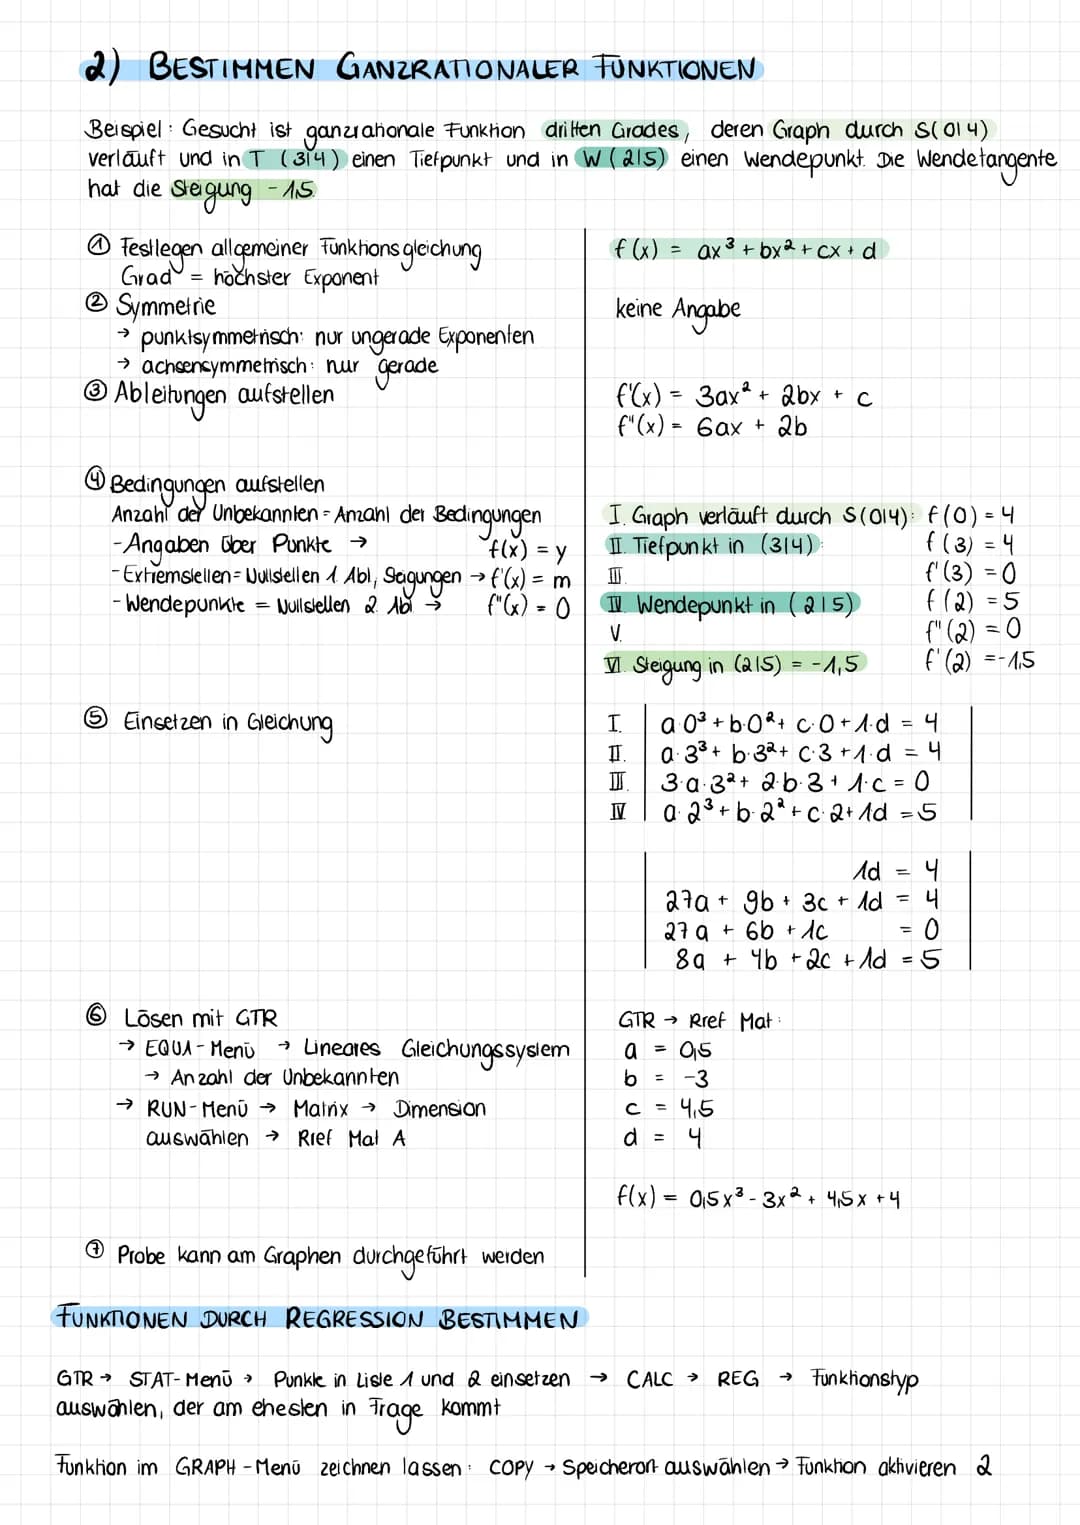 2) BESTIMMEN GANZRATIONALER FUNKTIONEN
Beispiel: Gesucht ist ganzrationale Funktion dritten Grades, deren Graph durch S(0|4)
verläuft und in T (3|4) einen Tiefpunkt und in W (2|5) einen Wendepunkt. Die Wendetangente
hat die Steigung -1,5.
① Festlegen allgemeiner Funktionsgleichung
Grad = höchster Exponent
f(x) = ax³ + bx² + cx + d
② Symmetrie
→ punktsymmetrisch: nur ungerade Exponenten
→ achsensymmetrisch: nur gerade
keine Angabe
③ Ableitungen aufstellen
f'(x) = 3ax² + 2bx + c
f"(x) = 6ax + 2b
④ Bedingungen aufstellen
Anzahl der Unbekannten = Anzahl der Bedingungen
- Angaben über Punkte → f(x) = y
- Extremstellen = Nullstellen 1 Abl, Steigungen → f'(x) = m
- Wendepunkte = Nullstellen 2. Abl → f"(x) = 0
I. Graph verläuft durch S(0|4): f(0) = 4
II. Tiefpunkt in (3|4): f(3) = 4
III. f'(3) = 0
IV. Wendepunkt in (2|5) f(2) = 5
V. f"(2) = 0
VI. Steigung in (2|5) = -1,5 f'(2) = -1,5
⑤ Einsetzen in Gleichung
I. a·0³ + b·0² + c·0 + 1·d = 4
II. a·3³ + b·3² + c·3 + 1·d = 4
III. 3·a·3² + 2·b·3 + 1·c = 0
IV a·2³ + b·2² + c·2 + 1d = 5
1d = 4
27a + 9b + 3c + 1d = 4
27a + 6b + 1c = 0
8a + 4b + 2c + 1d = 5
⑥ Lösen mit GTR
→ EQUA-Menü → Lineares Gleichungssystem
→ Anzahl der Unbekannten
→ RUN-Menü → Matrix → Dimension
auswählen → Rref Mat A
GTR → Rref Mat:
a = 0,5
b = -3
c = 4,5
d = 4
f(x) = 0,5x³ - 3x² + 4,5x + 4
⑦ Probe kann am Graphen durchgeführt werden
FUNKTIONEN DURCH REGRESSION BESTIMMEN
GTR → STAT-Menü → Punkte in Liste 1 und 2 einsetzen → CALC → REG → Funktionstyp
auswählen, der am ehesten in Frage kommt
Funktion im GRAPH-Menü zeichnen lassen: COPY → Speicherort auswählen → Funktion aktivieren 2